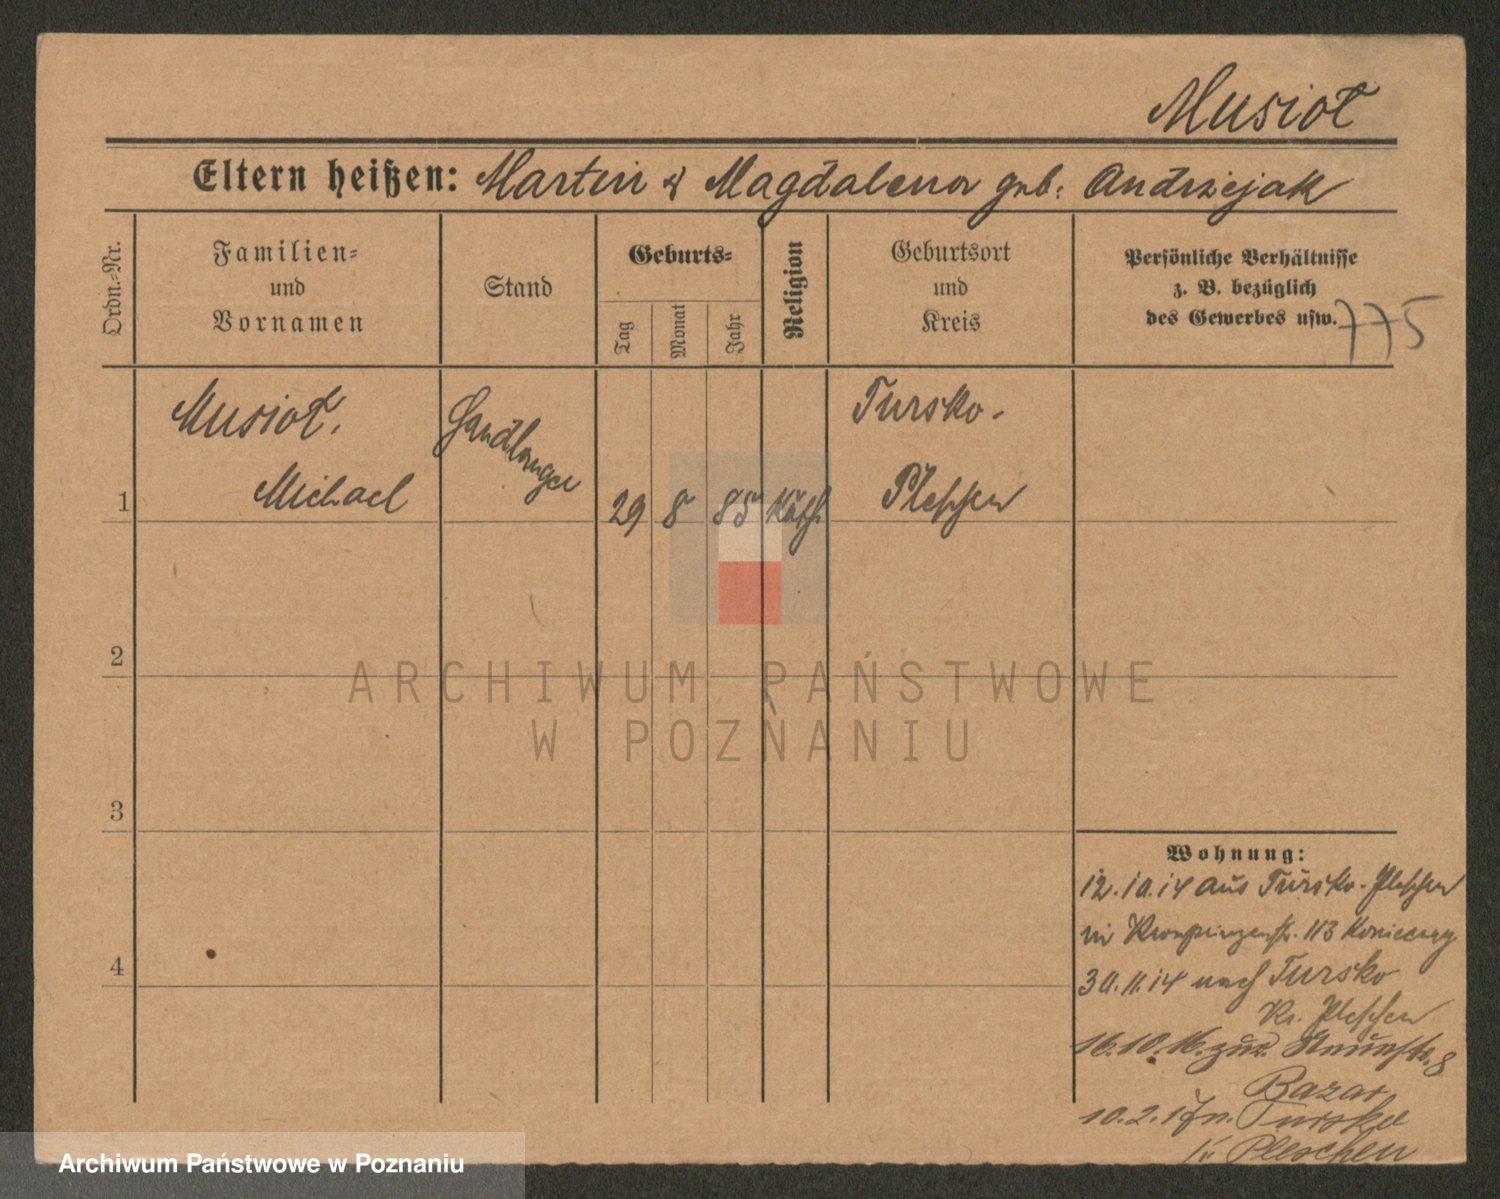 Musioł
Eltern heißen: Martin & Magdalena geb. Andrzejak
Ordn.-Nr.
Familien-
und
Vornamen
Stand
Geburts-
Tag
Monat
Jahr
Religion
Geburtsort
und
Kreis
Persönliche Verhältnisse
z. B. bezüglich
des Gewerbes usw.
775
1
Musioł,
Michael
Handlanger
29
8
85
Kath.
Tursko-
Pleschen
2
3
4
Wohnung:
12.10.14 aus Tursko-Pleschen
in Kronprinzenstr. 113
30.11.14 nach Tursko
Kr. Pleschen
16.10.16. zur. 8
Bazar
10.2.17 n. Tursko
Pleschen
ARCHIWUM PAŃSTWOWE
W POZNANIU
Archiwum Państwowe w Poznaniu